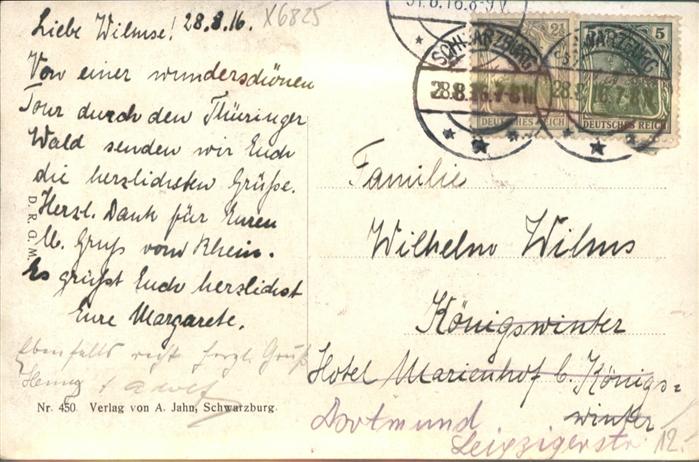 Liebe Wilmse! 28.8.16. X6825
Von einer wunderschönen
Tour durch den Thüringer
Wald senden wir Euch
die herzlichsten Grüße.
Herzl. Dank für Euren
lb. Gruß vom Rhein.
Es grüßt Euch herzlichst
Eure Margarete.
Ebenfalls recht herzl. Gruß
D. R. G. M.
Nr. 450 Verlag von A. Jahn, Schwarzburg
31.8.16.8-9V.
SCHWARZBURG
28.8.16.7-8N.
SCHWARZBURG
28.8.16.7-8N.
2½
DEUTSCHES REICH
5
DEUTSCHES REICH
Familie
Wilhelm Wilms
Königswinter
Hotel Marienhof b. Königs-
winter
Dortmund
Leipzigerstr. 12.